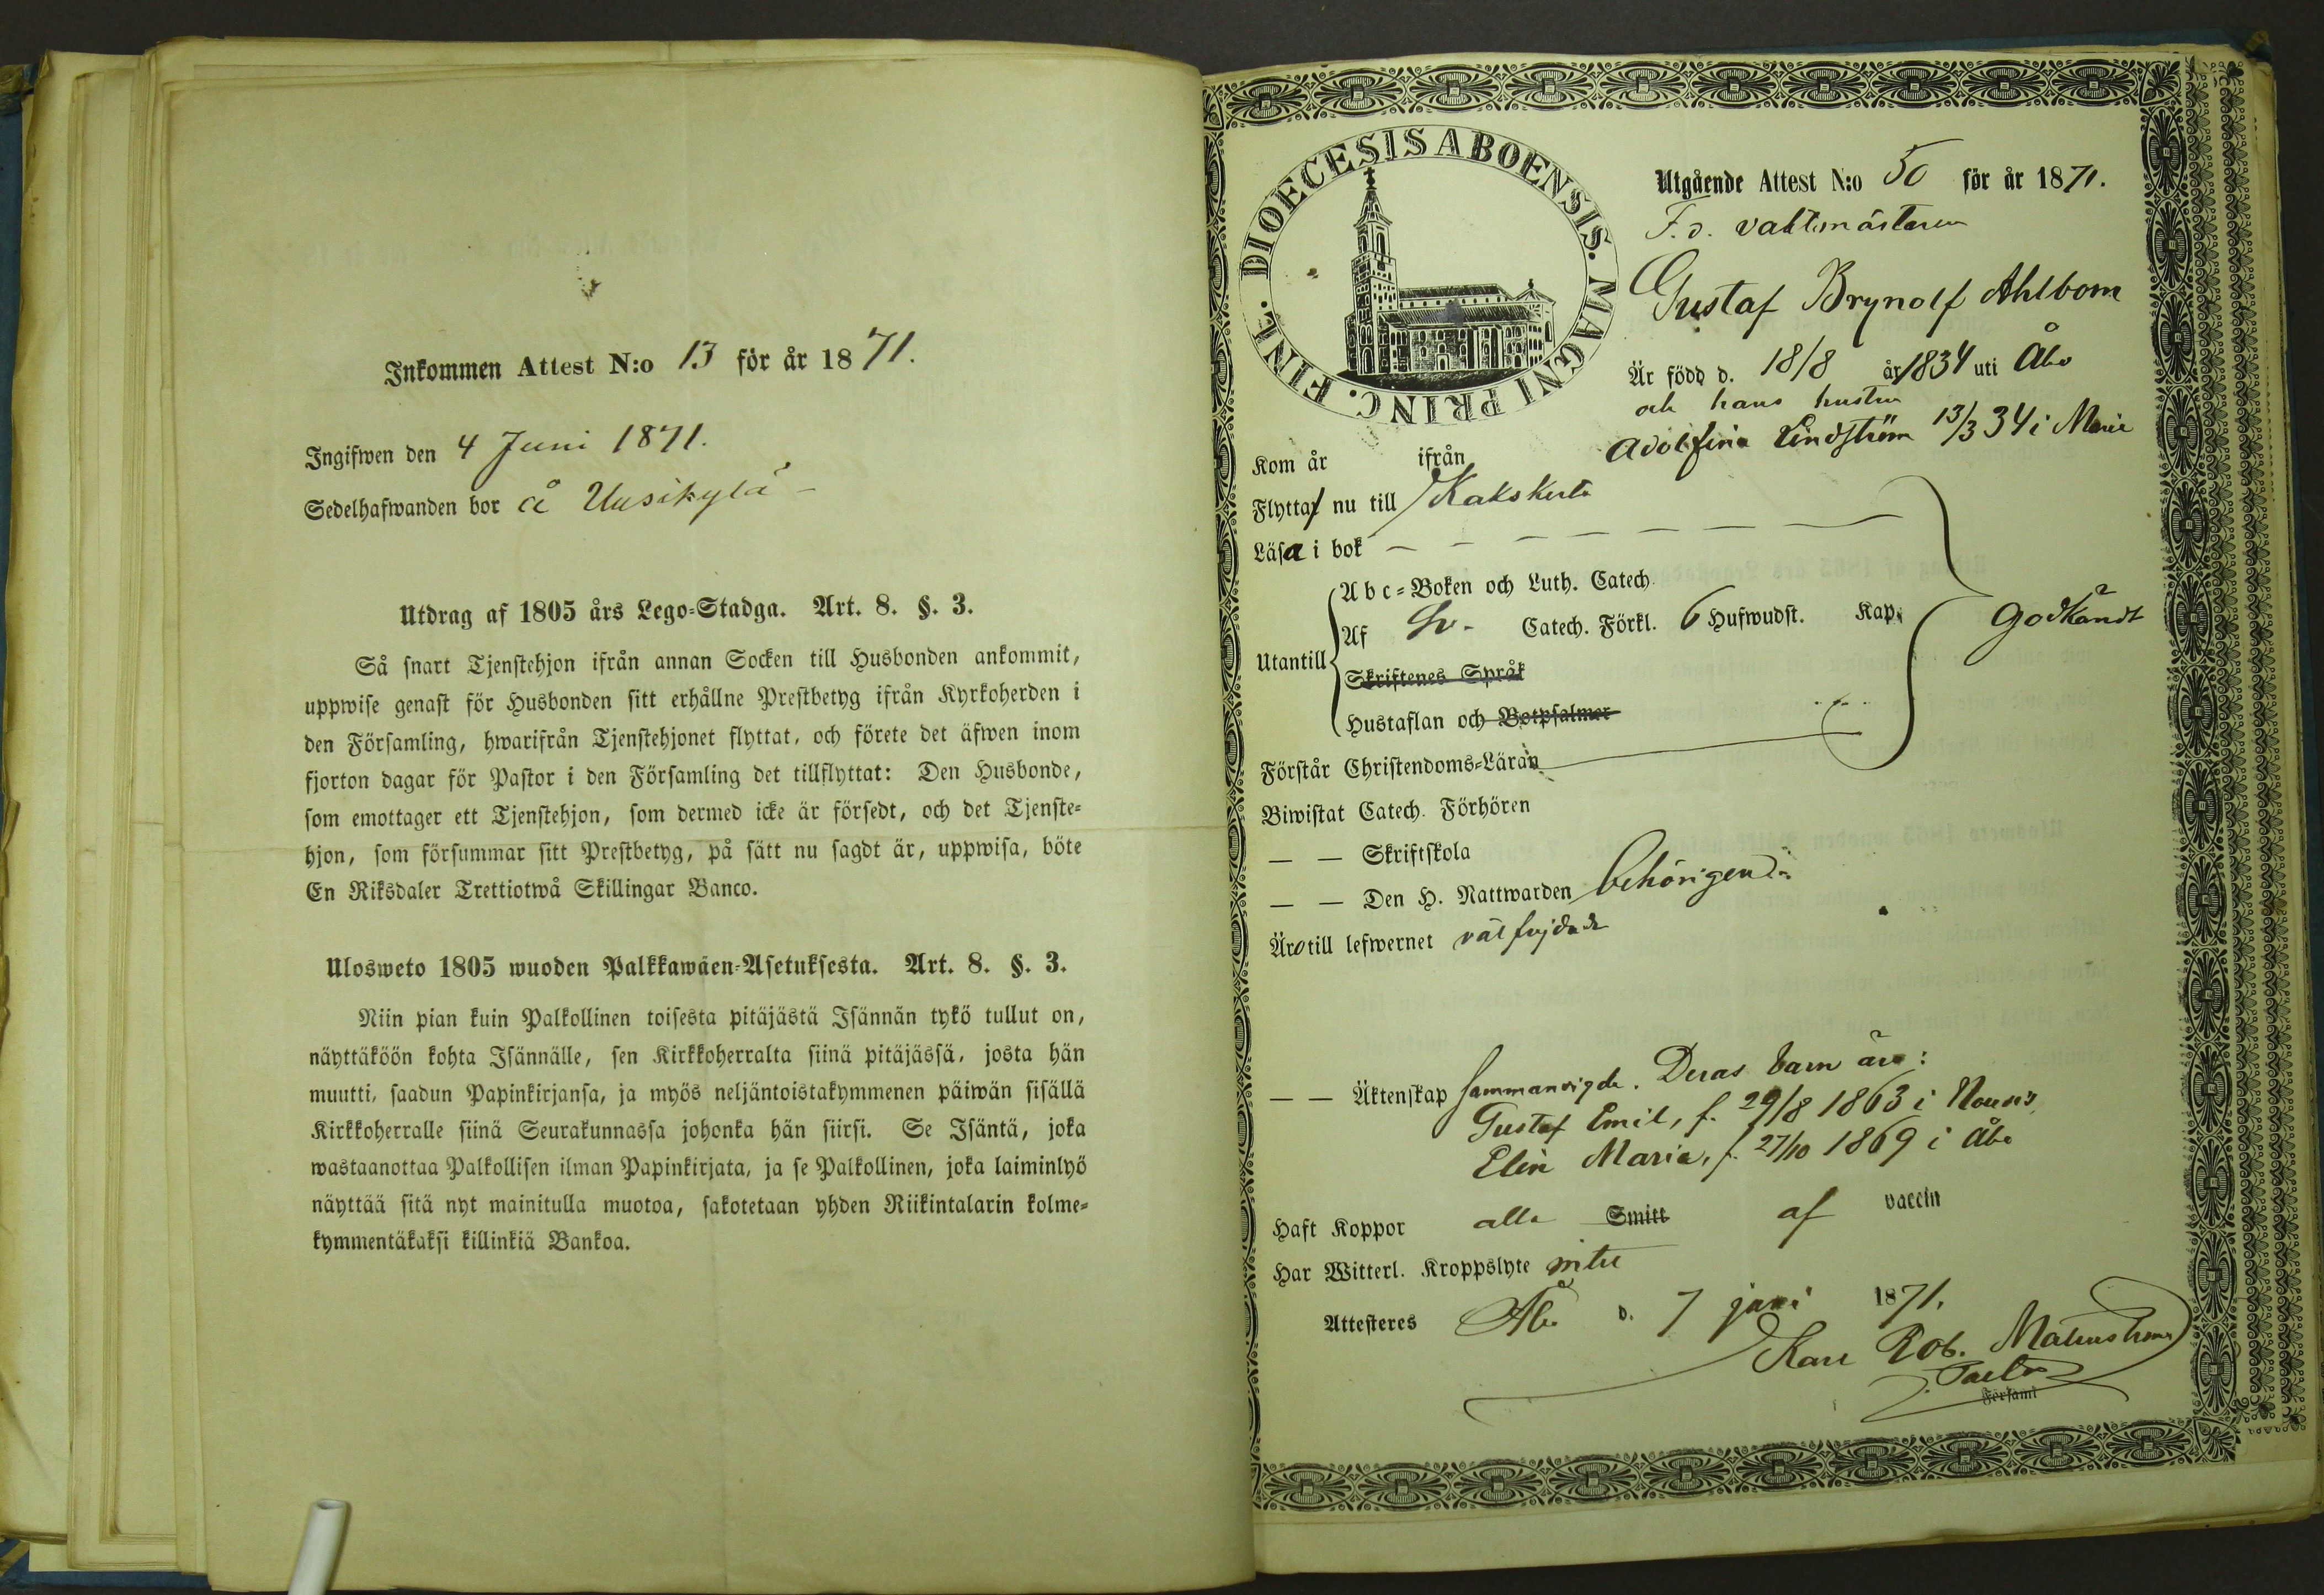 Inkommen Attest N:o 13 för år 1871.
Ingifwen den 4 Juni 1871.
Sedelhafwanden bor å Uusikylä -
Utdrag af 1805 års Lego-Stadga. Art. 8. §. 3.
Så snart Tjenstehjon ifrån annan Socken till Husbonden ankommit,
uppwise genast för Husbonden sitt erhållne Prestbetyg ifrån Kyrkoherden i
den Församling, hwarifrån Tjenstehjonet flyttat, och förete det äfwen inom
fjorton dagar för Pastor i den Församling det tillflyttat: Den Husbonde,
som emottager ett Tjenstehjon, som dermed icke är försedt, och det Tjenste-
hjon, som försummar sitt Prestbetyg, på sätt nu sagdt är, uppwisa, böte
En Riksdaler Trettiotwå Skillingar Banco.
Ulosweto 1805 wuoden Palkkawäen-Asetuksesta. Art. 8. §. 3.
Niin pian kuin Palkollinen toisesta pitäjästä Isännän tykö tullut on,
näyttäköön kohta Isännälle, sen Kirkkoherralta siinä pitäjässä, josta hän
muutti, saadun Papinkirjansa, ja myös neljäntoistakymmenen päiwän sisällä
Kirkkoherralle siinä Seurakunnassa johonka hän siirsi. Se Isäntä, joka
wastaanottaa Palkollisen ilman Papinkirjata, ja se Palkollinen, joka laiminlyö
näyttää sitä nyt mainitulla muotoa, sakotetaan yhden Riikintalarin kolme-
kymmentäkaksi killinkiä Bankoa.
DIOECESIS ABOENSIS. MAGNI PRINC. FINL.
Utgående Attest N:o 50 för år 1871.
F.d. vaktmästaren
Gustaf Brynolf Ahlbom
Är född d. 18/8 år 1834 uti Åbo
och hans hustru
Adolfina Lindström 13/3 34 i Marie
Kom år ifrån
Flytta nu till Kakskerta
Läsa i bok
Abc-Boken och Luth. Catech.
Utantill
Af Sv. Catech. Förkl. 6 Hufwudst. Kap.
godkändt
Skriftenes Språk
Hustaflan och Botpsalmer
Förstår Christendoms-Läran
Biwistat Catech. Förhören
— — Skriftskola
— — Den H. Nattwarden behörigen
Äro till lefwernet välfrejdade
— — Äktenskap sammanvigde. Deras barn äro:
Gustaf Emil, f. 29/8 1863 i
Elin Maria, f. 27/10 1869 i Åbo
Haft Koppor alla Smitt af vaccin
Har Witterl. Kroppslyte intet
Attesteres Åbo d. 7 juni 1871.
Karl Rob. Malmström
Församl